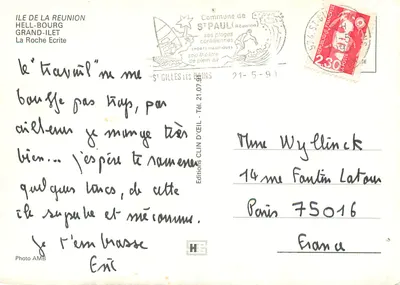 ILE DE LA REUNION
HELL-BOURG
GRAND-ILET
La Roche Ecrite
le "travail" ne me
bouffe pas trop, par
ailleurs je mange très
bien... j'espère te ramener
quelques lascs, de cette
île superbe et méconnue.
Je t'embrasse
Eric
Photo AMB
Editions CLIN D'ŒIL - Tél. 21.07.96
Commune de
ST PAUL
ses plages
ST GILLES LES BAINS
21-5-91
2,30
Mme Wyllinck
14 rue Fantin Latour
Paris 75016
France